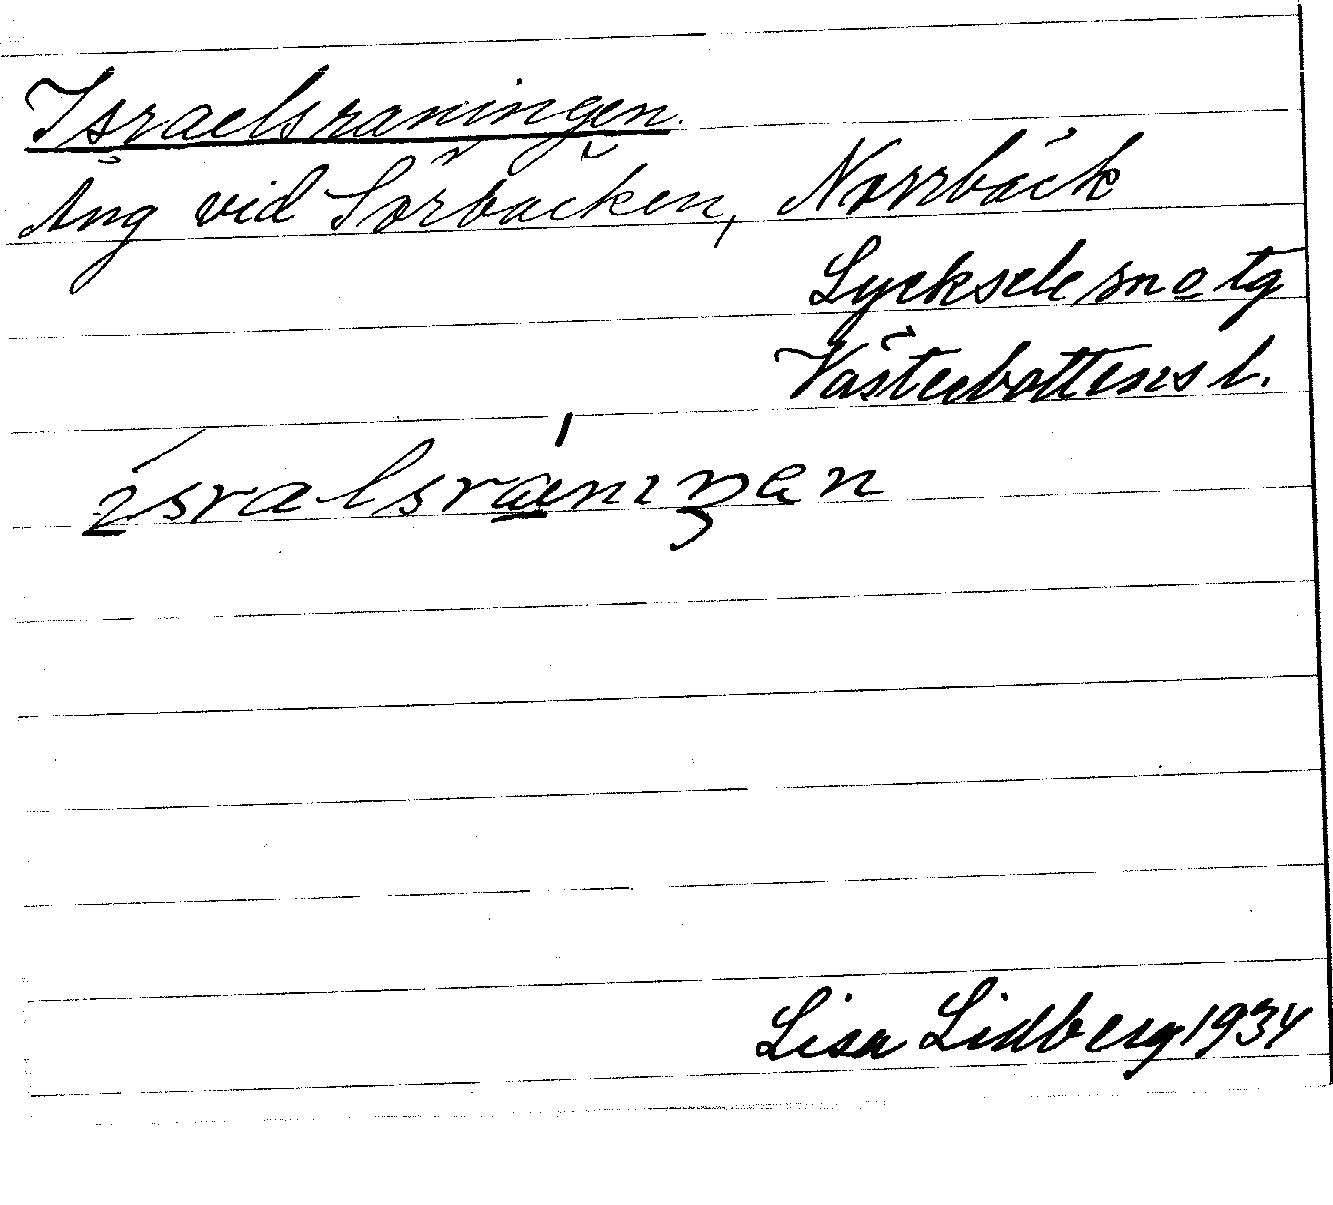 Israelsraningen.
Äng vid Sörbäcken, Norrbäck
Lycksele sn o tg
Västerbottens l.
ísralsrániŋən
Lisa Lidberg 1934